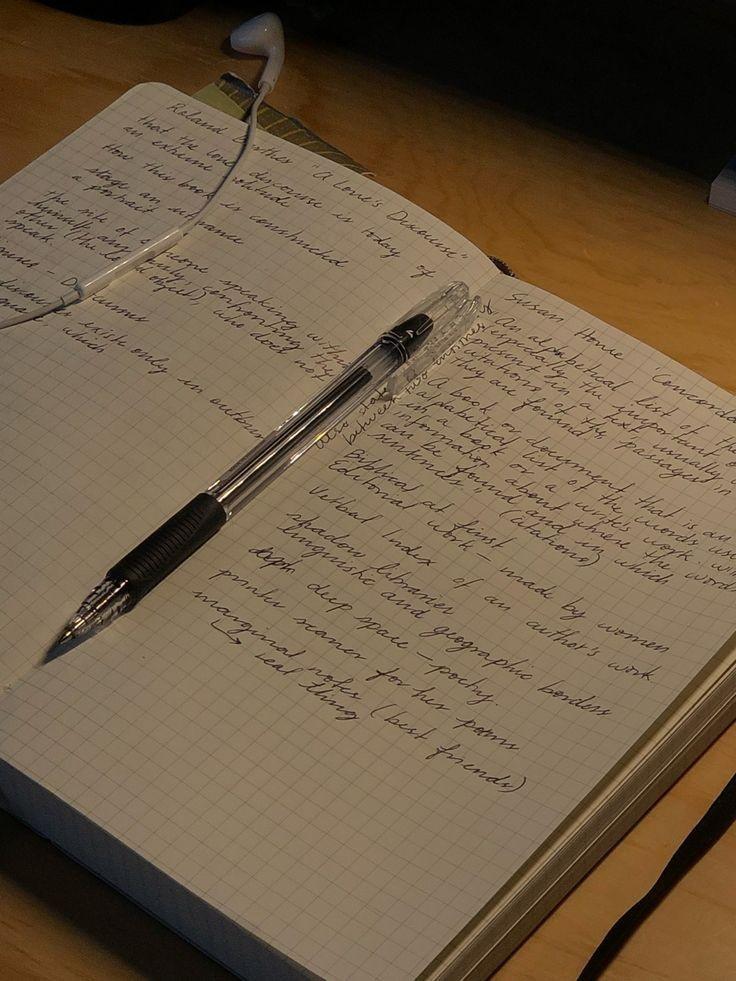 Roland Barthes "A Lover's Discourse"
that the lover's discourse is today of
an extreme solitude
How this book is constructed
stage an utterance
a portrait
the site of someone speaking within
himself, confronting the
other (the loved object), who does not
speak.
discourse exists only in
which
Susan Howe "Concorda
An alphabetical list of the
especially the important
present in a text usually
citations of the passages in
they are found
A book or document that is an
alphabetical list of the words used
in a book or a writer's work. with
information about where the words
can be found and in which
sentences (citations)
also
between two
Biblical at first
Editorial work – made by women
Verbal Index of an author's work
shadow libraries
linguistic and geographic borders
deph deep space – poetry.
printer scanner for her poems
marginal notes
↳ real thing (best friends)